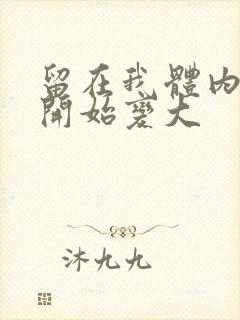 留在我體內
開始變大
沐九九